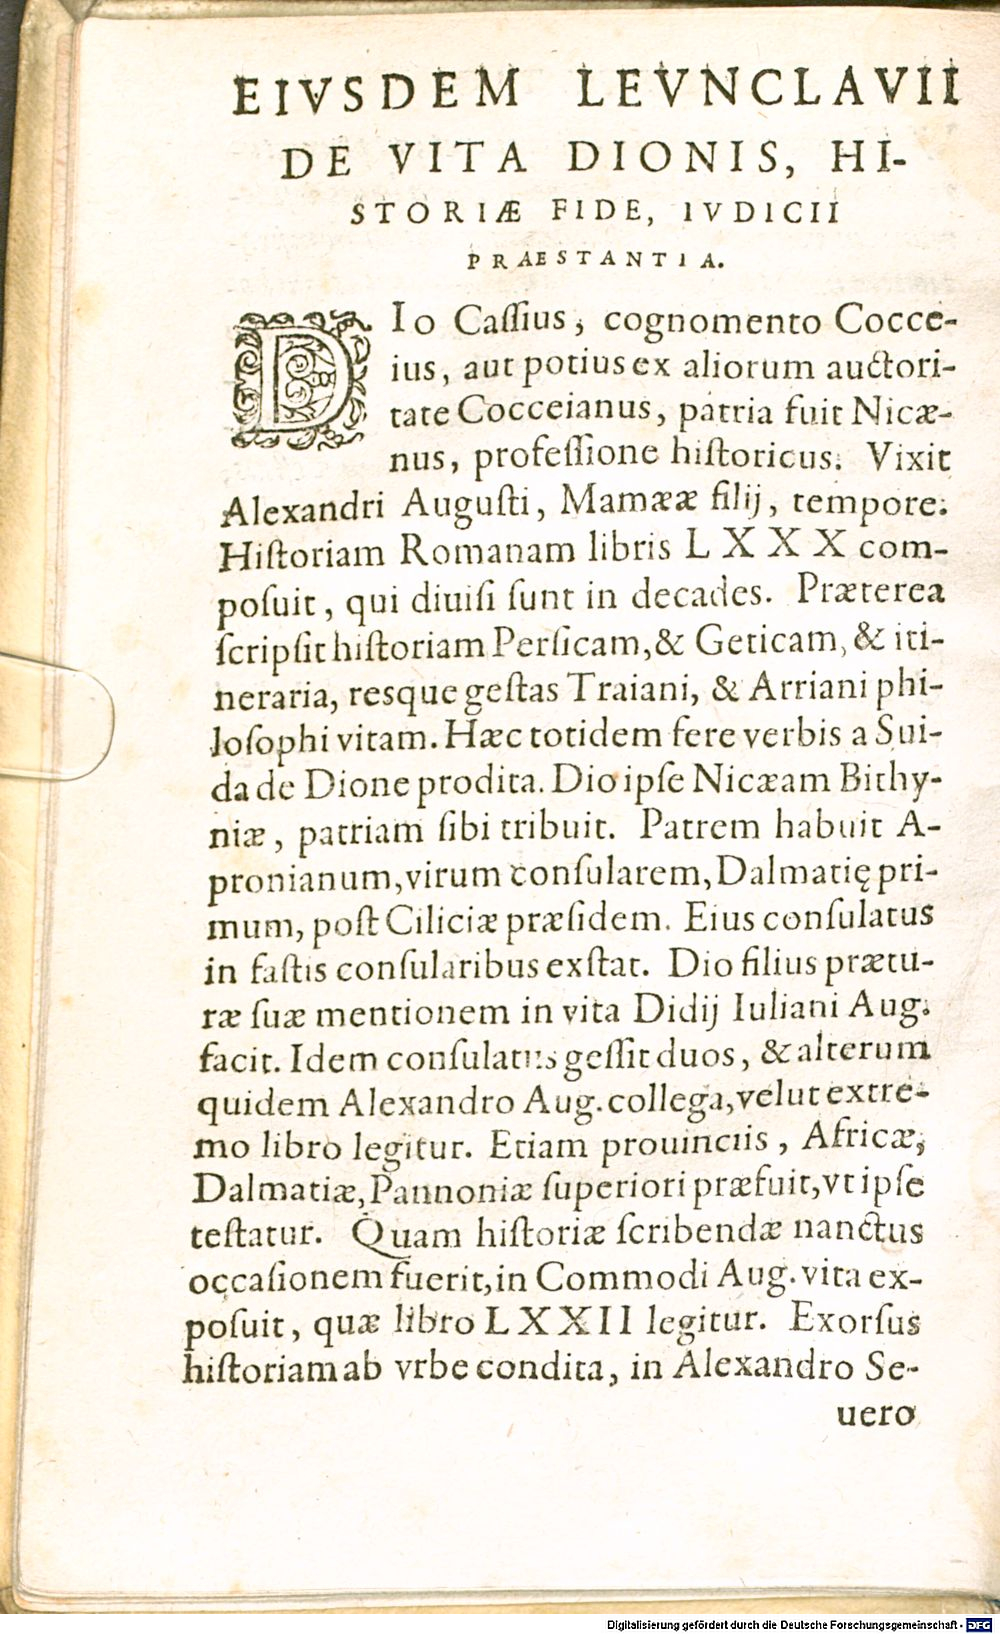 EIVSDEM LEVNCLAVII
DE VITA DIONIS, HI-
STORIÆ FIDE, IVDICII
PRAESTANTIA.
DIo Caſſius, cognomento Cocce-
ius, aut potius ex aliorum auctori-
tate Cocceianus, patria fuit Nicæ-
nus, profeſſione hiſtoricus. Vixit
Alexandri Auguſti, Mamææ filij, tempore.
Hiſtoriam Romanam libris LXXX com-
poſuit, qui diuiſi ſunt in decades. Præterea
ſcripſit hiſtoriam Perſicam, & Geticam, & iti-
neraria, resque geſtas Traiani, & Arriani phi-
loſophi vitam. Hæc totidem fere verbis a Sui-
da de Dione prodita. Dio ipſe Nicæam Bithy-
niæ, patriam ſibi tribuit. Patrem habuit A-
pronianum, virum conſularem, Dalmatię pri-
mum, poſt Ciliciæ præſidem. Eius conſulatus
in faſtis conſularibus exſtat. Dio filius prætu-
ræ ſuæ mentionem in vita Didij Iuliani Aug.
facit. Idem conſulatus geſſit duos, & alterum
quidem Alexandro Aug. collega, velut extre-
mo libro legitur. Etiam prouinciis, Africæ,
Dalmatiæ, Pannoniæ ſuperiori præfuit, vt ipſe
teſtatur. Quam hiſtoriæ ſcribendæ nanctus
occaſionem fuerit, in Commodi Aug. vita ex-
poſuit, quæ libro LXXII legitur. Exorſus
hiſtoriam ab vrbe condita, in Alexandro Se-
uero
Digitalisierung gefördert durch die Deutsche Forschungsgemeinschaft - DFG